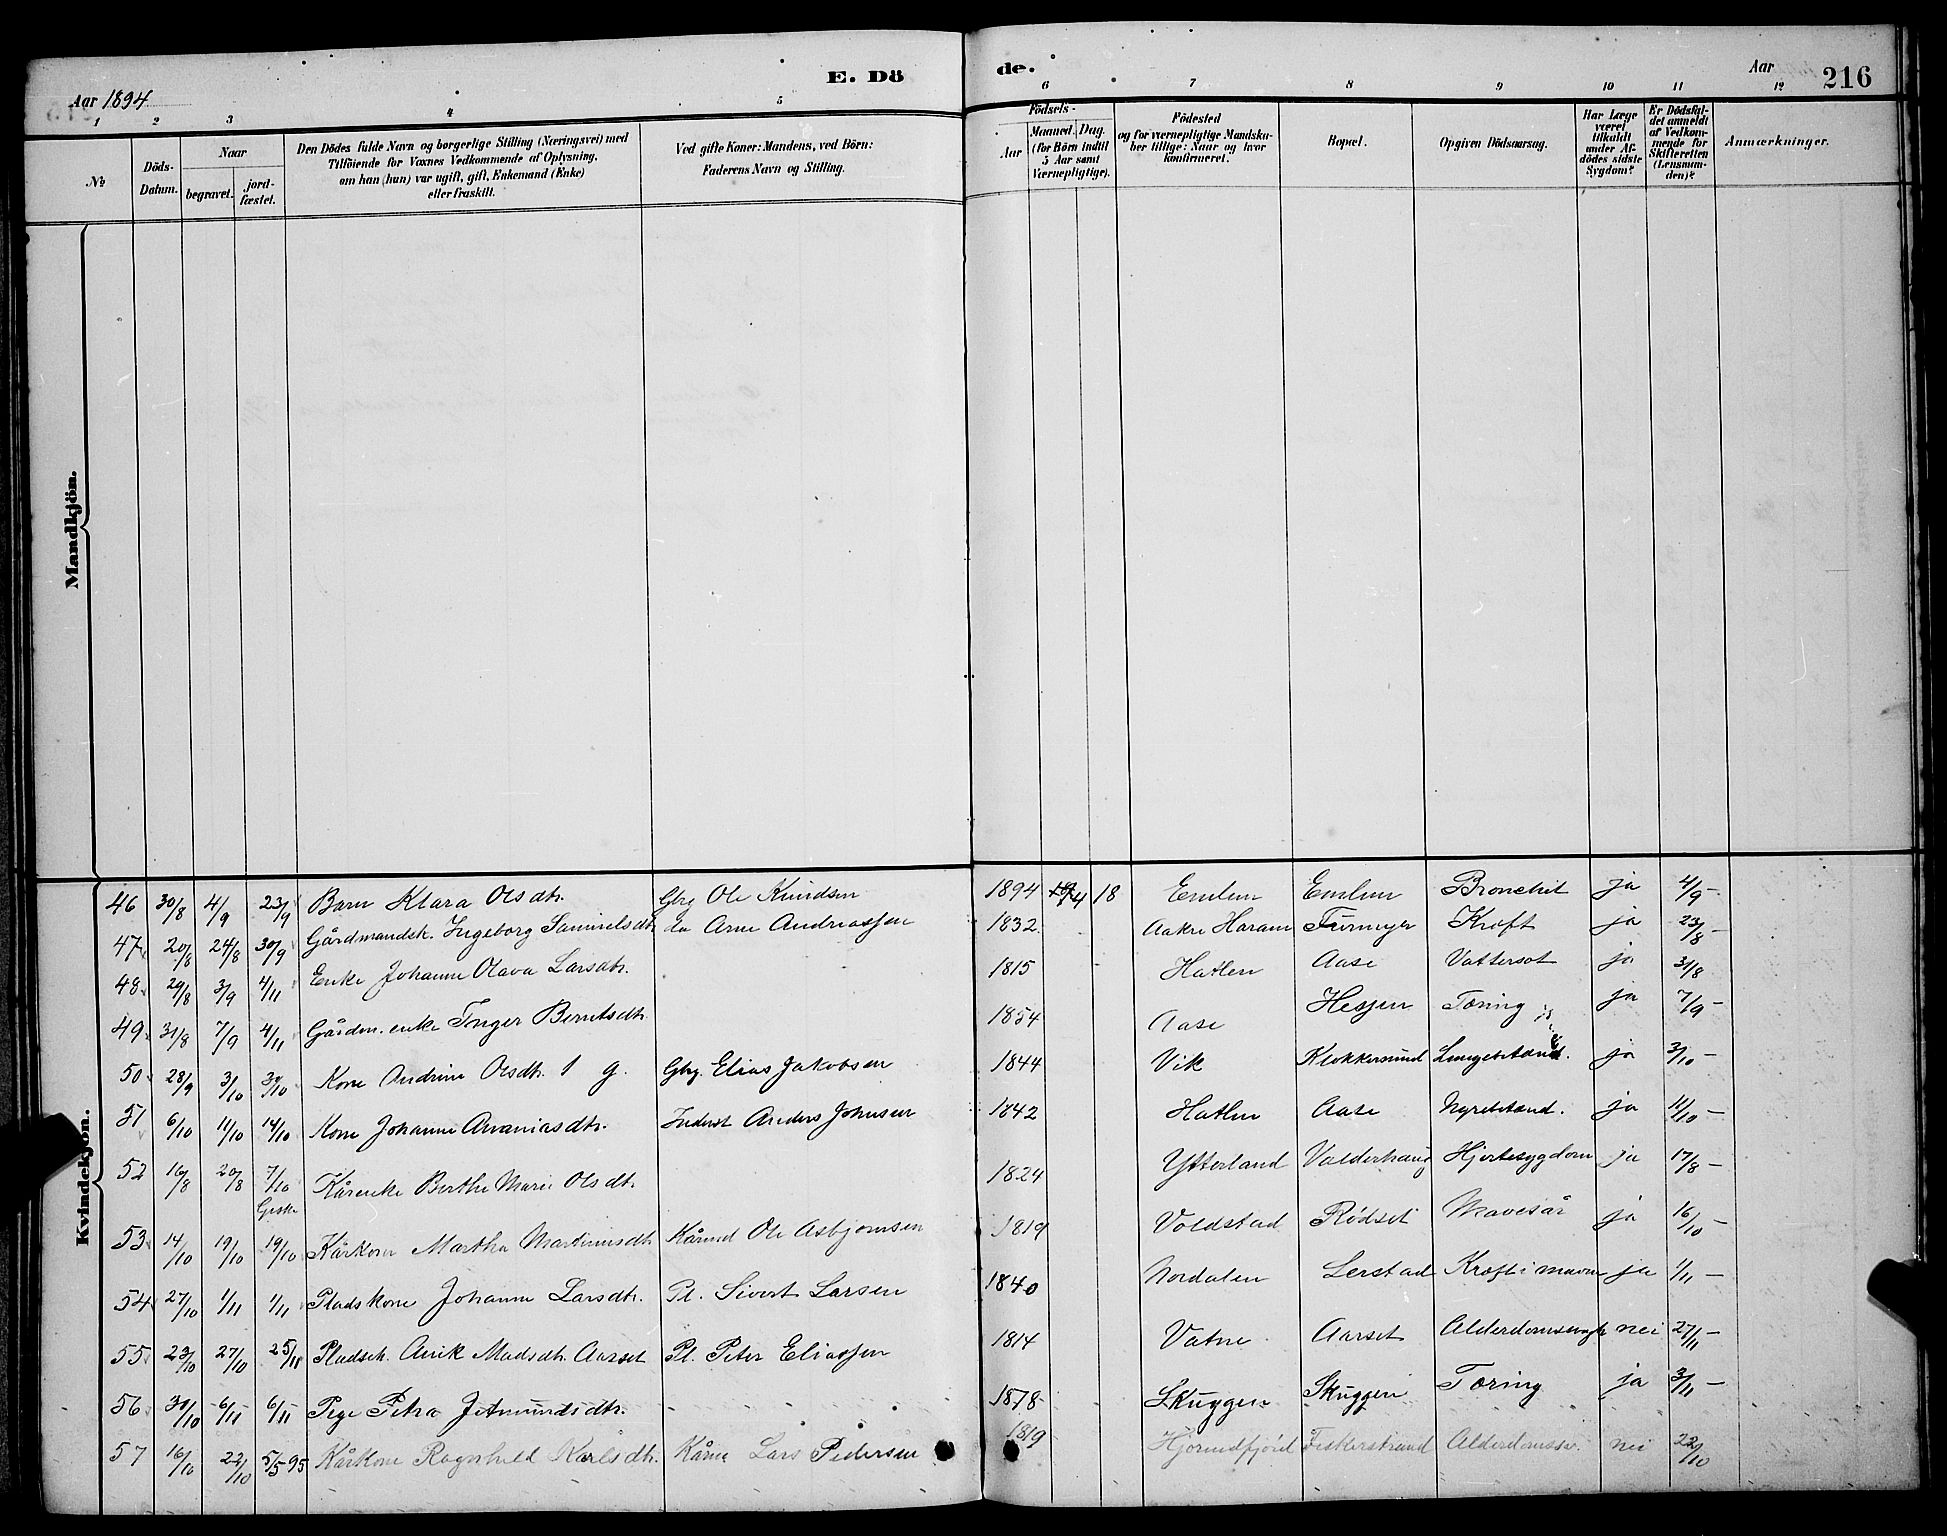 E. Dö
de.
Aar 1894
Aar
216
1 2 3 4 5 6 7 8 9 10 11 12
№
Döds-Datum.
Naar
begravet.
jord-fæstet.
Den Dödes fulde Navn og borgerlige Stilling (Næringsvei) med
Tilföiende for Voxnes Vedkommende af Oplysning,
om han (hun) var ugift, gift, Enkemand (Enke)
eller fraskilt.
Ved gifte Koner: Mandens, ved Börn:
Faderens Navn og Stilling.
Födsels-
Aar
Maaned. Dag.
(for Börn indtil
5 Aar samt
Værnepligtige).
Födested
og for værnepligtige Mandska-
ber tillige: Naar og hvor
konfirmeret.
Bopæl.
Opgiven Dödsaarsag.
Har Læge
været
tilkaldt
under Af-
dödes sidste
Sygdom?
Er Dödsfal-
det anmeldt
af Vedkom-
mende for
Skifteretten
(Lensman-
den)?
Anmærkninger.
Mandkjön.
Kvindekjön.
46 30/8 4/9 23/9 Barn Klara Olsdtr. Gbrg Ole Knudsen 1894 4 18 Emlem Emlem Bronchit ja 4/9 -
47 20/8 24/8 30/9 Gårdmandsk. Ingeborg Samuelsdtr do Arne Andreassen 1832 Aakre Haram Furmyr Kræft ja 23/8 -
48 29/8 3/9 4/11 Enke Johanne Olava Larsdtr. 1815 Hatlen Aase Vattersot ja 31/8
49 31/8 7/9 4/11 Gårdm. enke Inger Berntsdtr 1854 Aase Hessen Tæring ja 7/9 -
50 28/9 3/10 30/10 Kone Andrine Olsdtr. g. Gbrg. Elias Jakobsen 1844 Vik Klokkersund Lungebetænd. ja 3/10 -
51 6/10 11/10 14/10 Kone Johanne Ananiasdtr. Inderst Anders Johnsen 1842 Hatlen Aase Nyrebetænd. ja 11/10 -
52 16/8 20/8 7/10 Giske Kårenke Berthe Marie Olsdtr. 1824 Ytterland Valderhaug Hjertesygdom ja 17/8 -
53 14/10 19/10 19/10 Kårkone Martha Martinusdtr Kårmd Ole Asbjørnsen 1819 Voldstad Rødset Mavesår ja 16/10 -
54 27/10 1/11 1/11 Pladskone Johanne Larsdtr. Pl. Sivert Larsen 1840 Nordalen Lerstad Kræft i maven ja 1/11 -
55 23/10 27/10 25/11 Pladsk. Anik Madsdtr. Aarset Pl. Peter Eliassen 1814 Vatne Aarset nei 27/11 -
56 30/10 6/11 6/11 Pige Petra Jetmundsdtr. 1878 Skuggen Skuggen Tæring ja 3/11 -
57 16/10 22/10 5/5 95 Kårkone Ragnhild Karlsdtr. Kårm Lars Pedersen 1819 Hjørundfjord Fiskerstrand Alderdomssv. nei 22/10